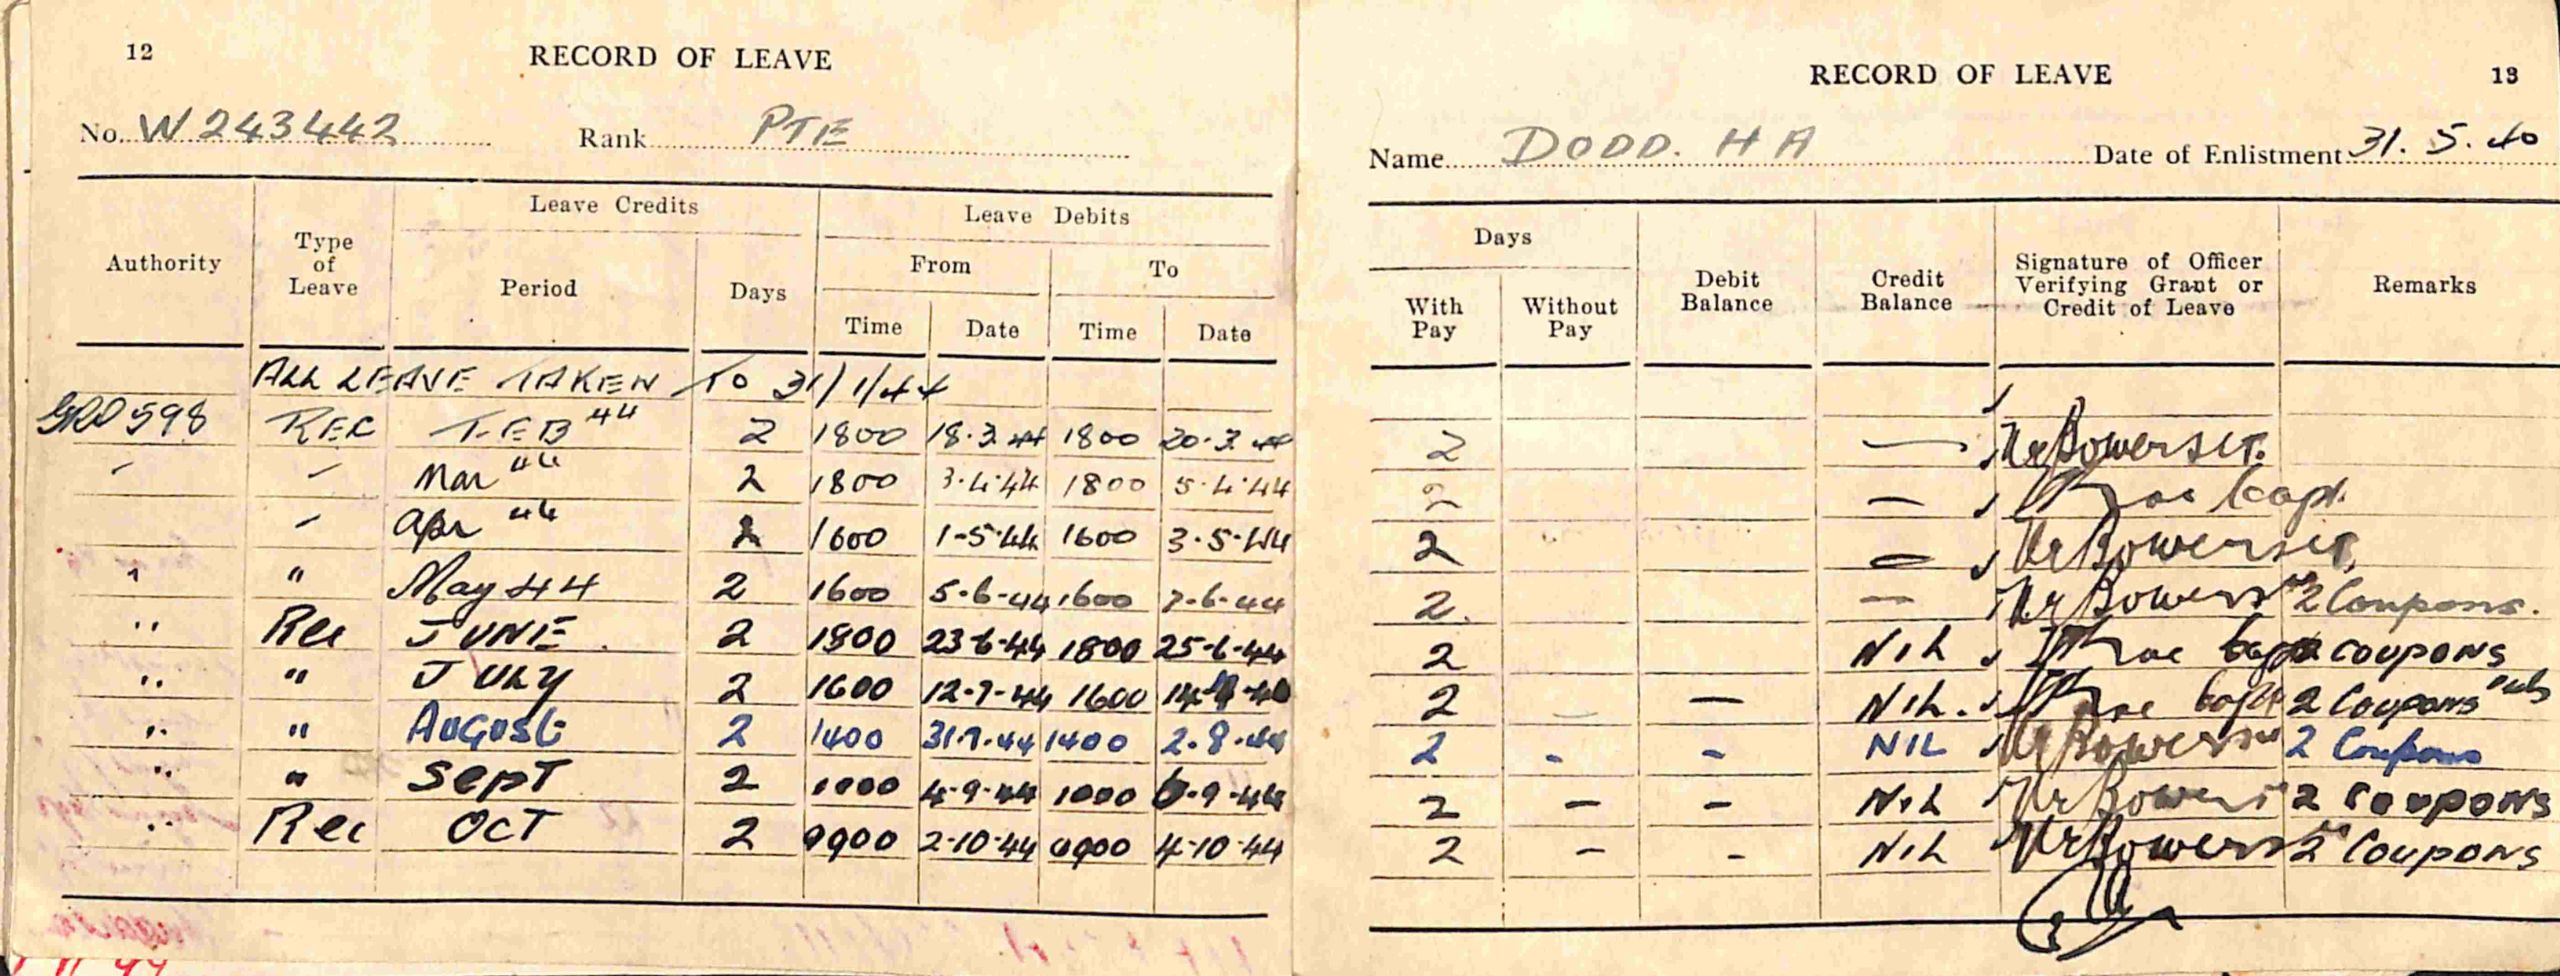 12
RECORD OF LEAVE
No. W 243442 Rank PTE
Authority Type of Leave Leave Credits Leave Debits
Period Days From To
Time Date Time Date
ALL LEAVE TAKEN TO 31/1/44
GRO 598 REC FEB 44 2 1800 18.3.44 1800 20.3.44
" " Mar 44 2 1800 3.4.44 1800 5.4.44
" Apr 44 2 1600 1-5-44 1600 3-5-44
" " May 44 2 1600 5-6-44 1600 7-6-44
" Rec JUNE. 2 1800 23-6-44 1800 25-6-44
" " JULY 2 1600 12-7-44 1600
" " AUGUST 2 1400 31.7.44 1400 2.8.44
" " SEPT 2 1000 4-9-44 1000 6-9-44
" Rec OCT 2 0900 2-10-44 0900 4-10-44
RECORD OF LEAVE
13
Name DODD. H A Date of Enlistment 31. 5. 40
Days Debit Balance Credit Balance Signature of Officer Verifying Grant or Credit of Leave Remarks
With Pay Without Pay
2 —
2 — Capt.
2 —
2. — 2 Coupons.
2 NIL COUPONS
2 — NIL. 2 Coupons
2 - - NIL 2 Coupons
2 — — NIL 2 COUPONS
2 — - NIL 2 COUPONS